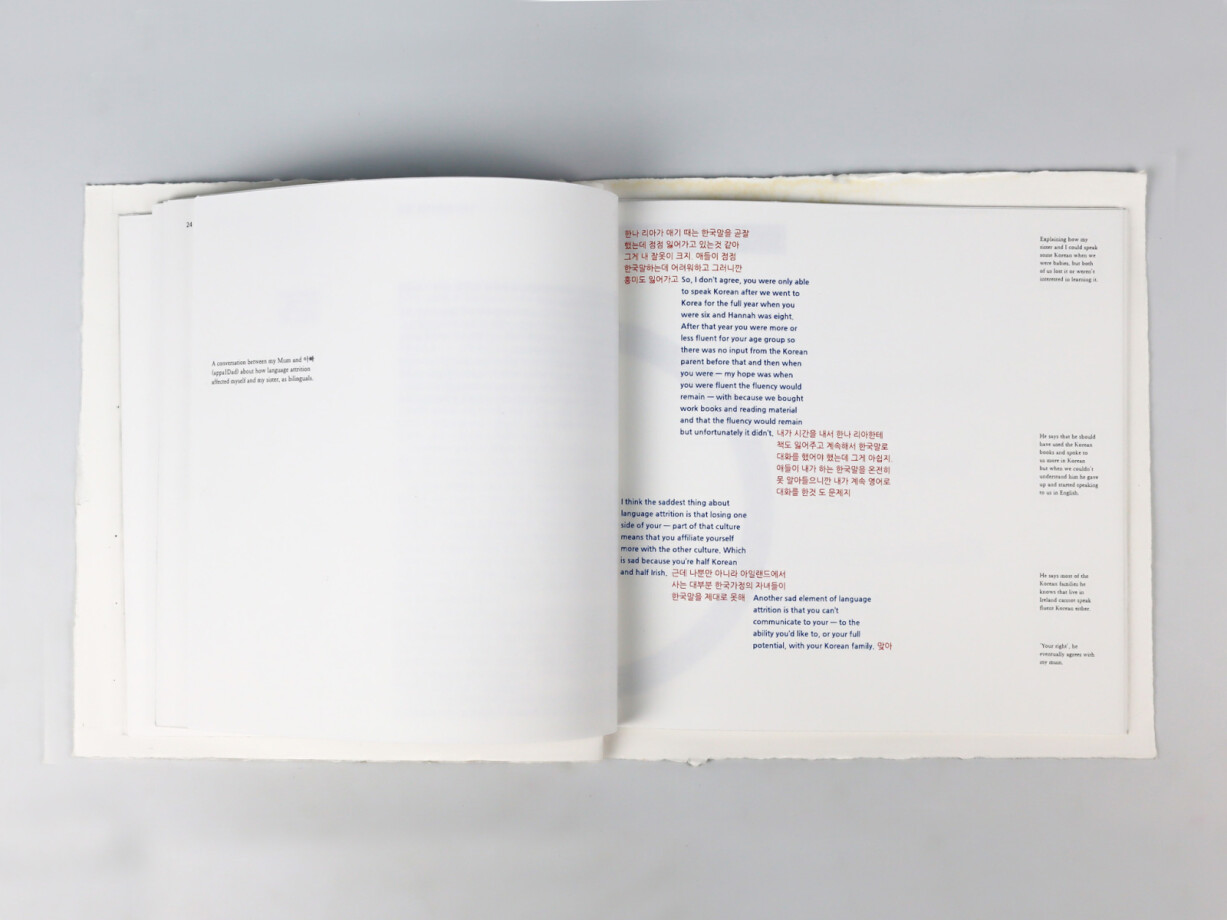 24
A conversation between my Mum and 아빠
(appa|Dad) about how language attrition
affected myself and my sister, as bilinguals.
한나 리아가 애기 때는 한국말을 곧잘
했는데 점점 잃어가고 있는것 같아
그게 내 잘못이 크지. 애들이 점점
한국말하는데 어려워하고 그러니깐
흥미도 잃어가고 So, I don't agree, you were only able
to speak Korean after we went to
Korea for the full year when you
were six and Hannah was eight.
After that year you were more or
less fluent for your age group so
there was no input from the Korean
parent before that and then when
you were — my hope was when
you were fluent the fluency would
remain — with because we bought
work books and reading material
and that the fluency would remain
but unfortunately it didn't. 내가 시간을 내서 한나 리아한테
책도 읽어주고 계속해서 한국말로
대화를 했어야 했는데 그게 아쉽지.
애들이 내가 하는 한국말을 온전히
못 알아들으니깐 내가 계속 영어로
대화를 한것 도 문제지
I think the saddest thing about
language attrition is that losing one
side of your — part of that culture
means that you affiliate yourself
more with the other culture. Which
is sad because you're half Korean
and half Irish. 근데 나뿐만 아니라 아일랜드에서
사는 대부분 한국가정의 자녀들이
한국말을 제대로 못해 Another sad element of language
attrition is that you can't
communicate to your — to the
ability you'd like to, or your full
potential, with your Korean family. 맞아
Explaining how my
sister and I could speak
more Korean when we
were babies, but both
of us lost it or weren't
interested in learning it.
He says that he should
have used the Korean
books and spoke to
us more in Korean
but when we couldn't
understand him he gave
up and started speaking
to us in English.
He says most of the
Korean families he
knows that live in
Ireland cannot speak
fluent Korean either.
'Your right', he
eventually agrees with
my mum.